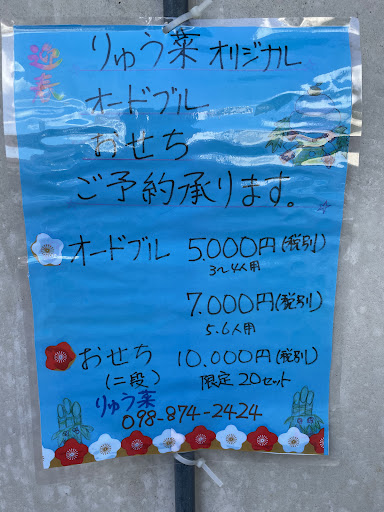 迎春
りゅう菜 オリジナル
オードブル
おせち
ご予約承ります。
オードブル 5.000円(税別)
3~4人用
7.000円(税別)
5.6人用
おせち 10.000円(税別)
(二段) 限定20セット
りゅう菜
098-874-2424